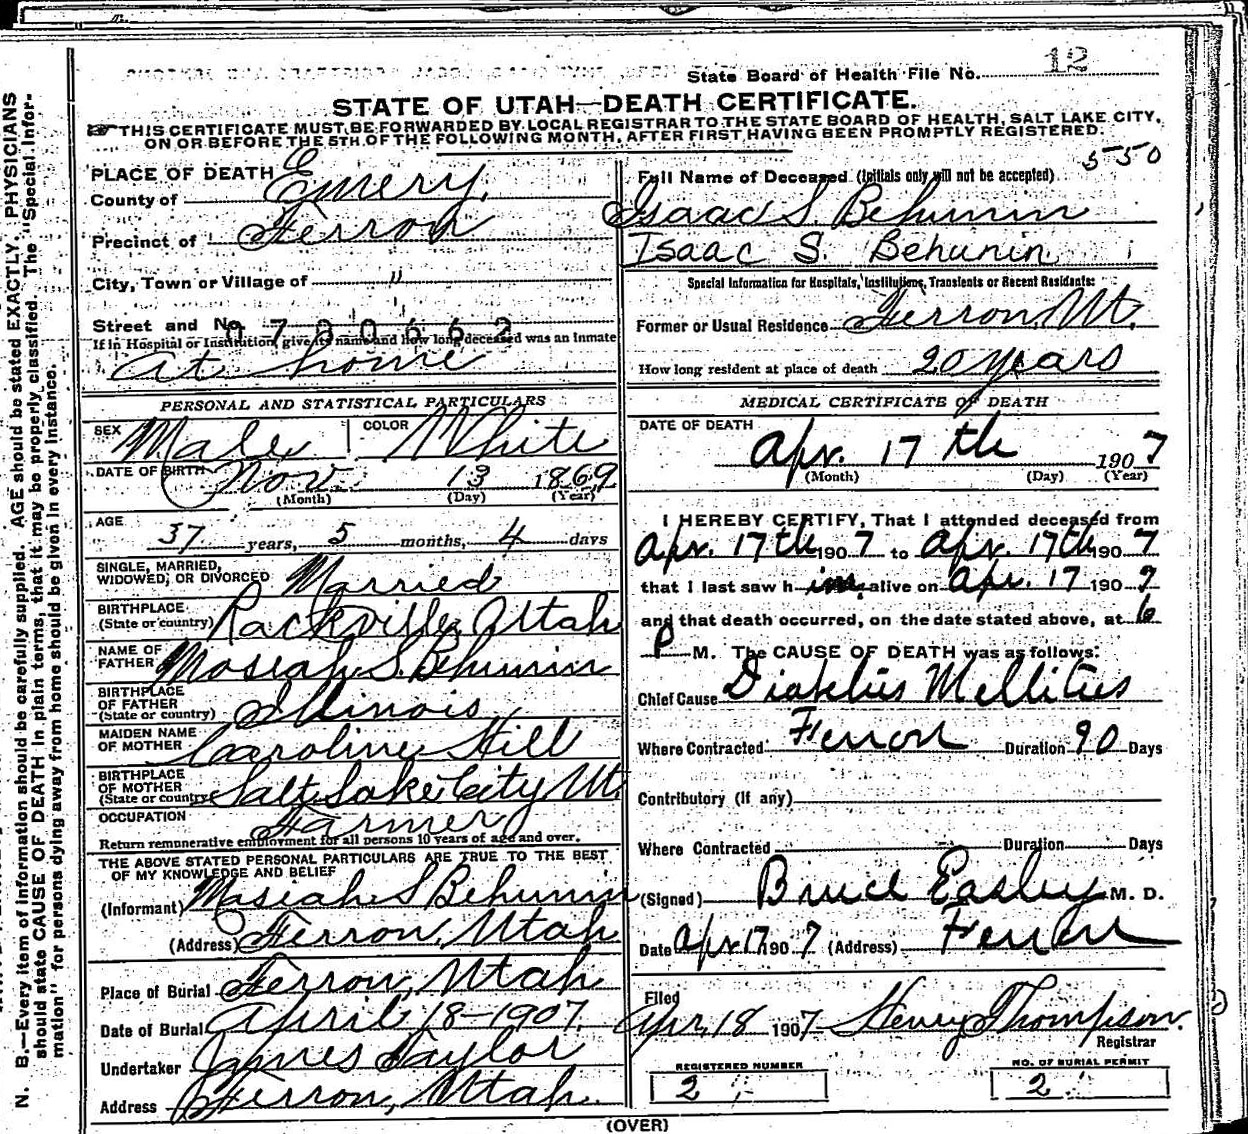 State Board of Health File No. 12
STATE OF UTAH—DEATH CERTIFICATE.
THIS CERTIFICATE MUST BE FORWARDED BY LOCAL REGISTRAR TO THE STATE BOARD OF HEALTH, SALT LAKE CITY,
ON OR BEFORE THE 5TH OF THE FOLLOWING MONTH, AFTER FIRST HAVING BEEN PROMPTLY REGISTERED.
PLACE OF DEATH
County of Emery.
Precinct of Ferron
City, Town or Village of "
Street and No.
9780662
If in Hospital or Institution, give its name and how long deceased was an inmate
at home
PERSONAL AND STATISTICAL PARTICULARS
SEX Male COLOR White
DATE OF BIRTH Nov. 13 1869
(Month) (Day) (Year)
AGE
37 years, 5 months, 4 days
SINGLE, MARRIED,
WIDOWED, OR DIVORCED Married
BIRTHPLACE
(State or country) Rockville, Utah
NAME OF
FATHER Mosiah S. Behunin
BIRTHPLACE
OF FATHER
(State or country) Illinois
MAIDEN NAME
OF MOTHER Caroline Hill
BIRTHPLACE
OF MOTHER
(State or country) Salt Lake City Ut.
OCCUPATION Farmer
Return remunerative employment for all persons 10 years of age and over.
THE ABOVE STATED PERSONAL PARTICULARS ARE TRUE TO THE BEST
OF MY KNOWLEDGE AND BELIEF
(Informant) Mosiah S Behunin
(Address) Ferron, Utah
Place of Burial Ferron, Utah
Date of Burial April 18-1907.
Undertaker James Taylor
Address Ferron, Utah.
550
Full Name of Deceased (Initials only will not be accepted)
Isaac S. Behunin
Isaac S. Behunin.
Special Information for Hospitals, Institutions, Transients or Recent Residents:
Former or Usual Residence Ferron, Ut.
How long resident at place of death 20 years
MEDICAL CERTIFICATE OF DEATH
DATE OF DEATH
Apr. 17th 1907
(Month) (Day) (Year)
I HEREBY CERTIFY, That I attended deceased from
Apr. 17th 1907 to Apr. 17th 1907
that I last saw him alive on Apr. 17 1907
and that death occurred, on the date stated above, at 6
P M. The CAUSE OF DEATH was as follows:
Chief Cause Diabetus Mellitus
Where Contracted Ferron Duration 90 Days
Contributory (If any)
Where Contracted Duration Days
(Signed) Bruce Easley M. D.
Date Apr 17 1907 (Address) Ferron
Filed
Apr. 18 1907 Henry Thompson.
Registrar
REGISTERED NUMBER
2
NO. OF BURIAL PERMIT
2
(OVER)
N. B.—Every item of information should be carefully supplied. AGE should be stated EXACTLY. PHYSICIANS
should state CAUSE OF DEATH in plain terms, that it may be properly classified. The "Special Infor-
mation" for persons dying away from home should be given in every instance.